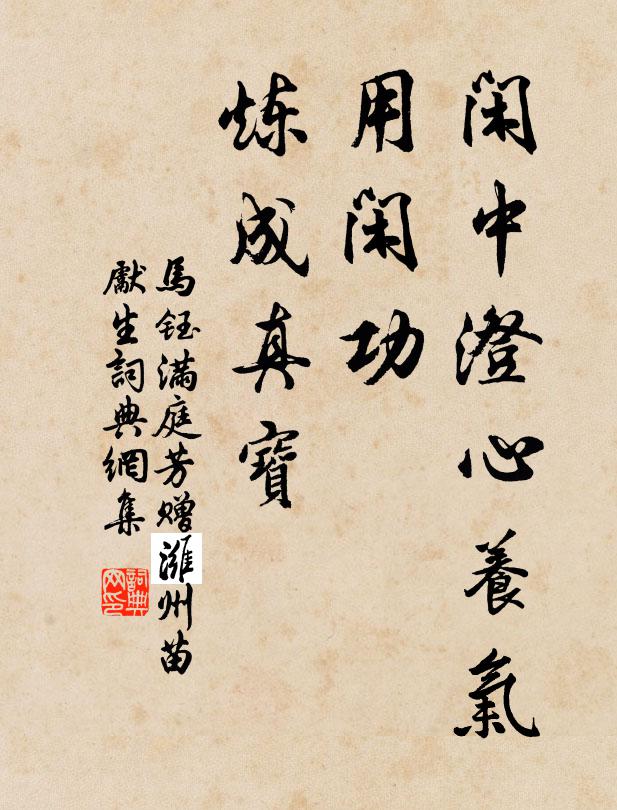 閑中澄心養氣
用閑功
炼成真寶
馬鈺满庭芳赠潍州苗
獻生詞典網集
詞典网印